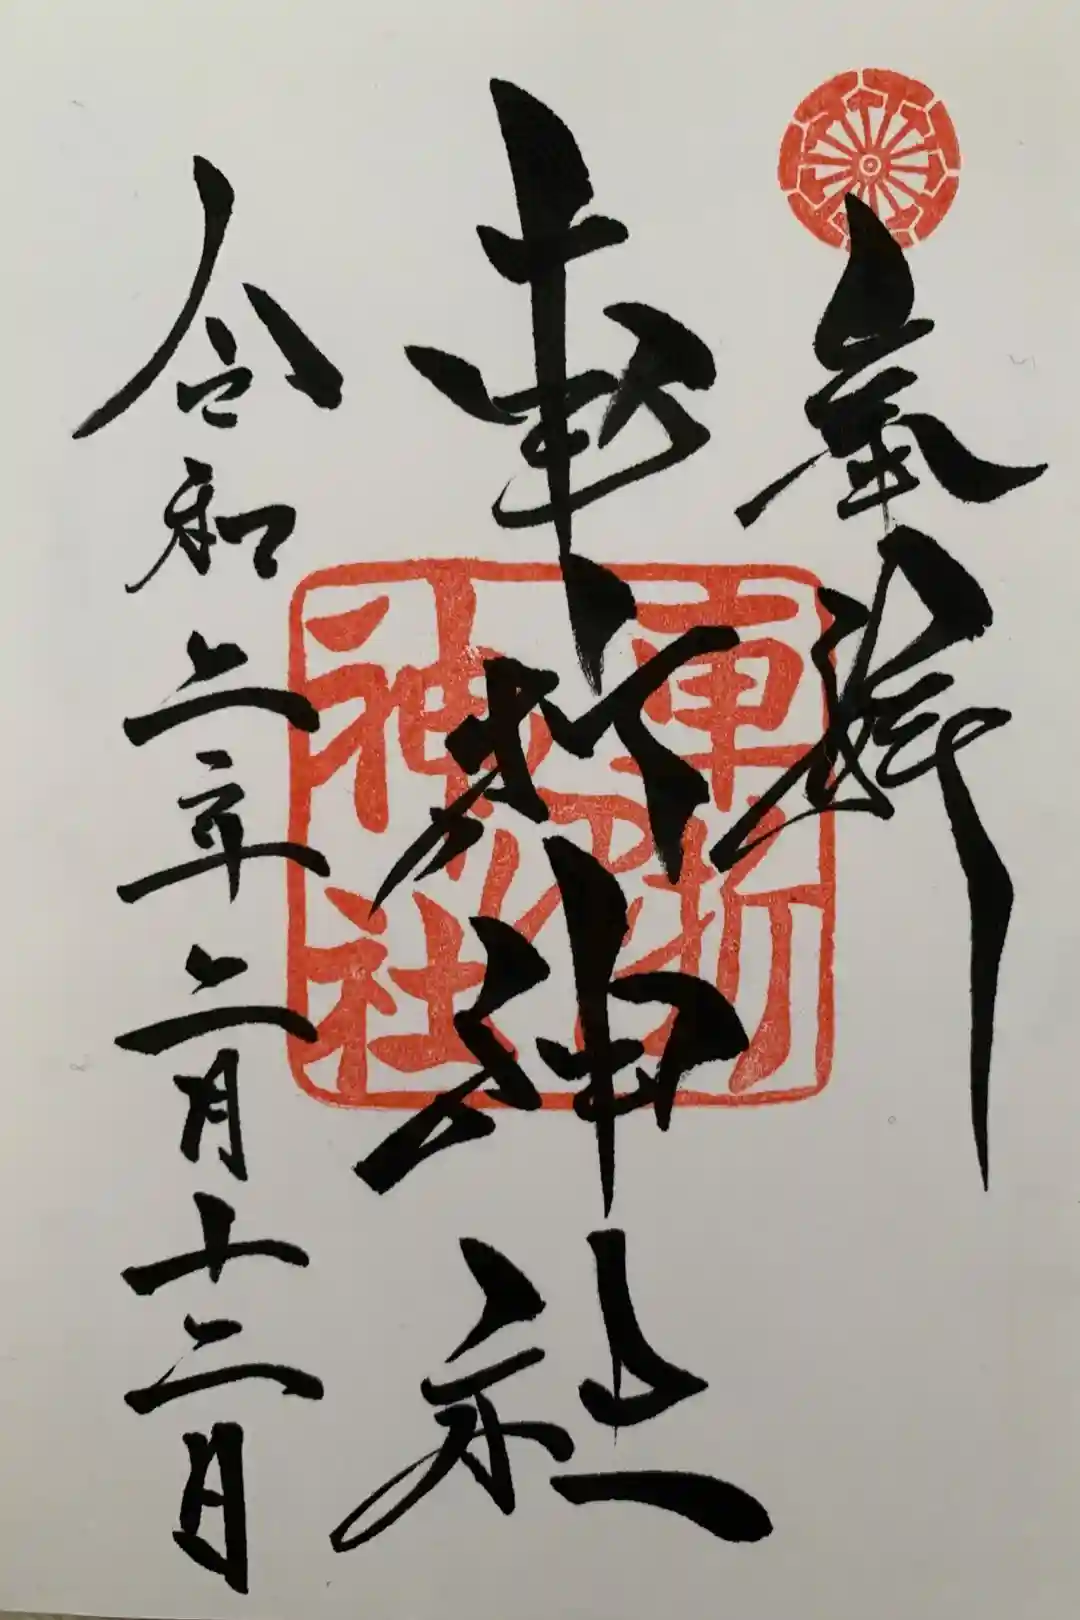 奉拝
車折神社
令和二年二月十二日
車折
神社